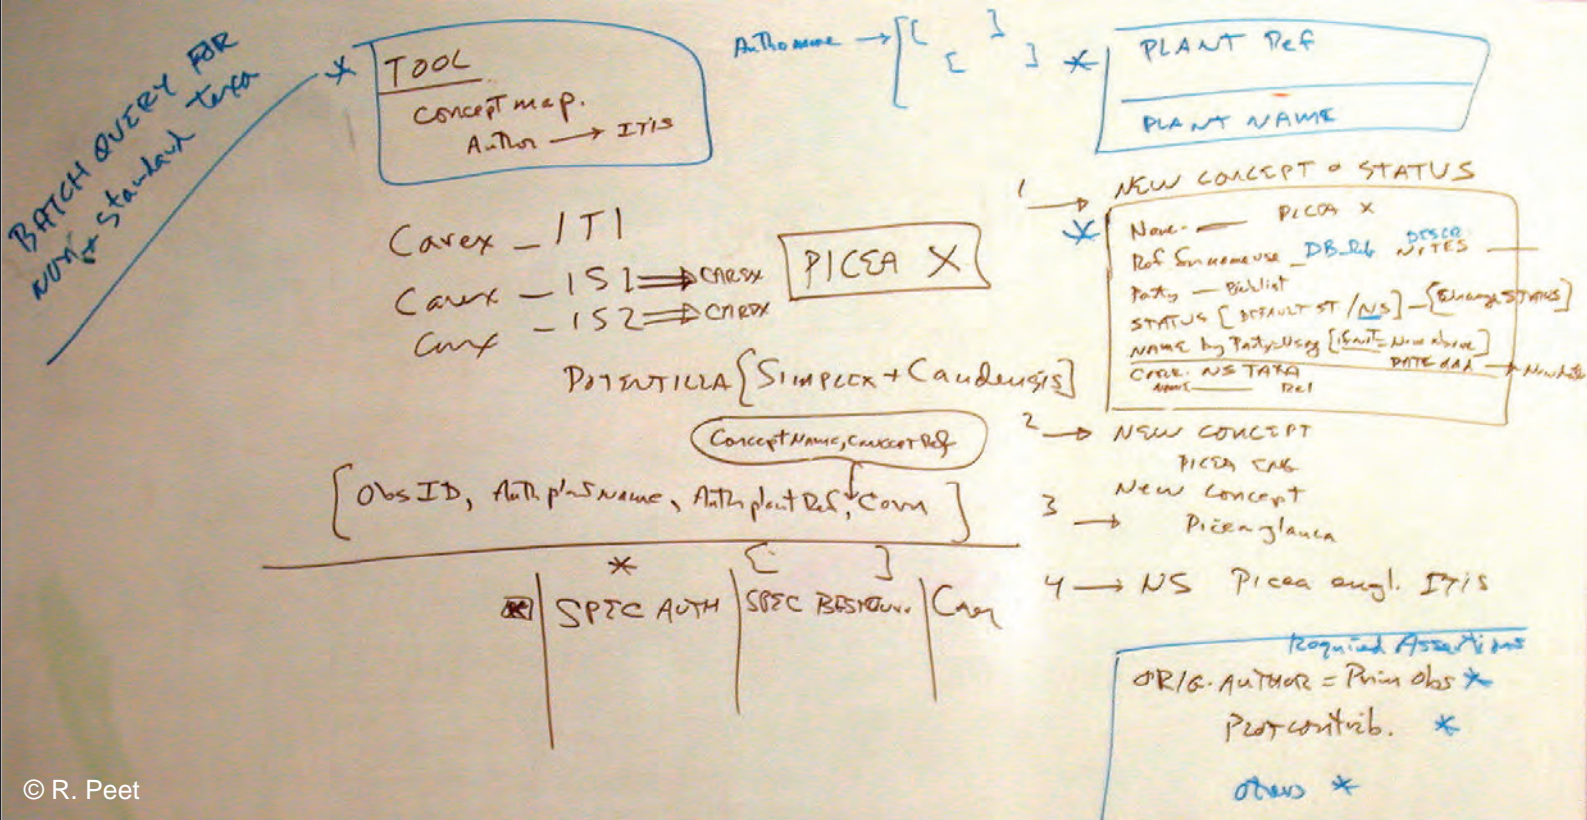 BATCH QUERY FOR
Non-Standard taxa
TOOL
Concept map.
Author → ITIS
Authoname → [ [ ]
[ ]
PLANT Ref
PLANT NAME
Carex – 1T1
Carex – 1S1 ⇒ CAREX
Carex – 1S2 ⇒ CAREX
PICEA X
POTENTILLA [SIMPLEX + Canadensis]
ConceptName, ConceptRef
[ObsID, AuthplantName, AuthplantRef, Com]
[ ]
SPEC AUTH
SPEC
1 → NEW CONCEPT STATUS
Name — PICEA X
Ref DB_Ref DESCR NOTES
Party — Picklist
STATUS [DEFAULT ST / NS] – [Change STATUS]
NAME by Party
NS TAXA
DATE → New date
Ref
2 → NEW CONCEPT
PICEA ENG
New Concept
3 → Picea glauca
4 → NS Picea engl. ITIS
Required Assertions
ORIG. AUTHOR = Prim Obs *
Plot contrib. *
others *
© R. Peet